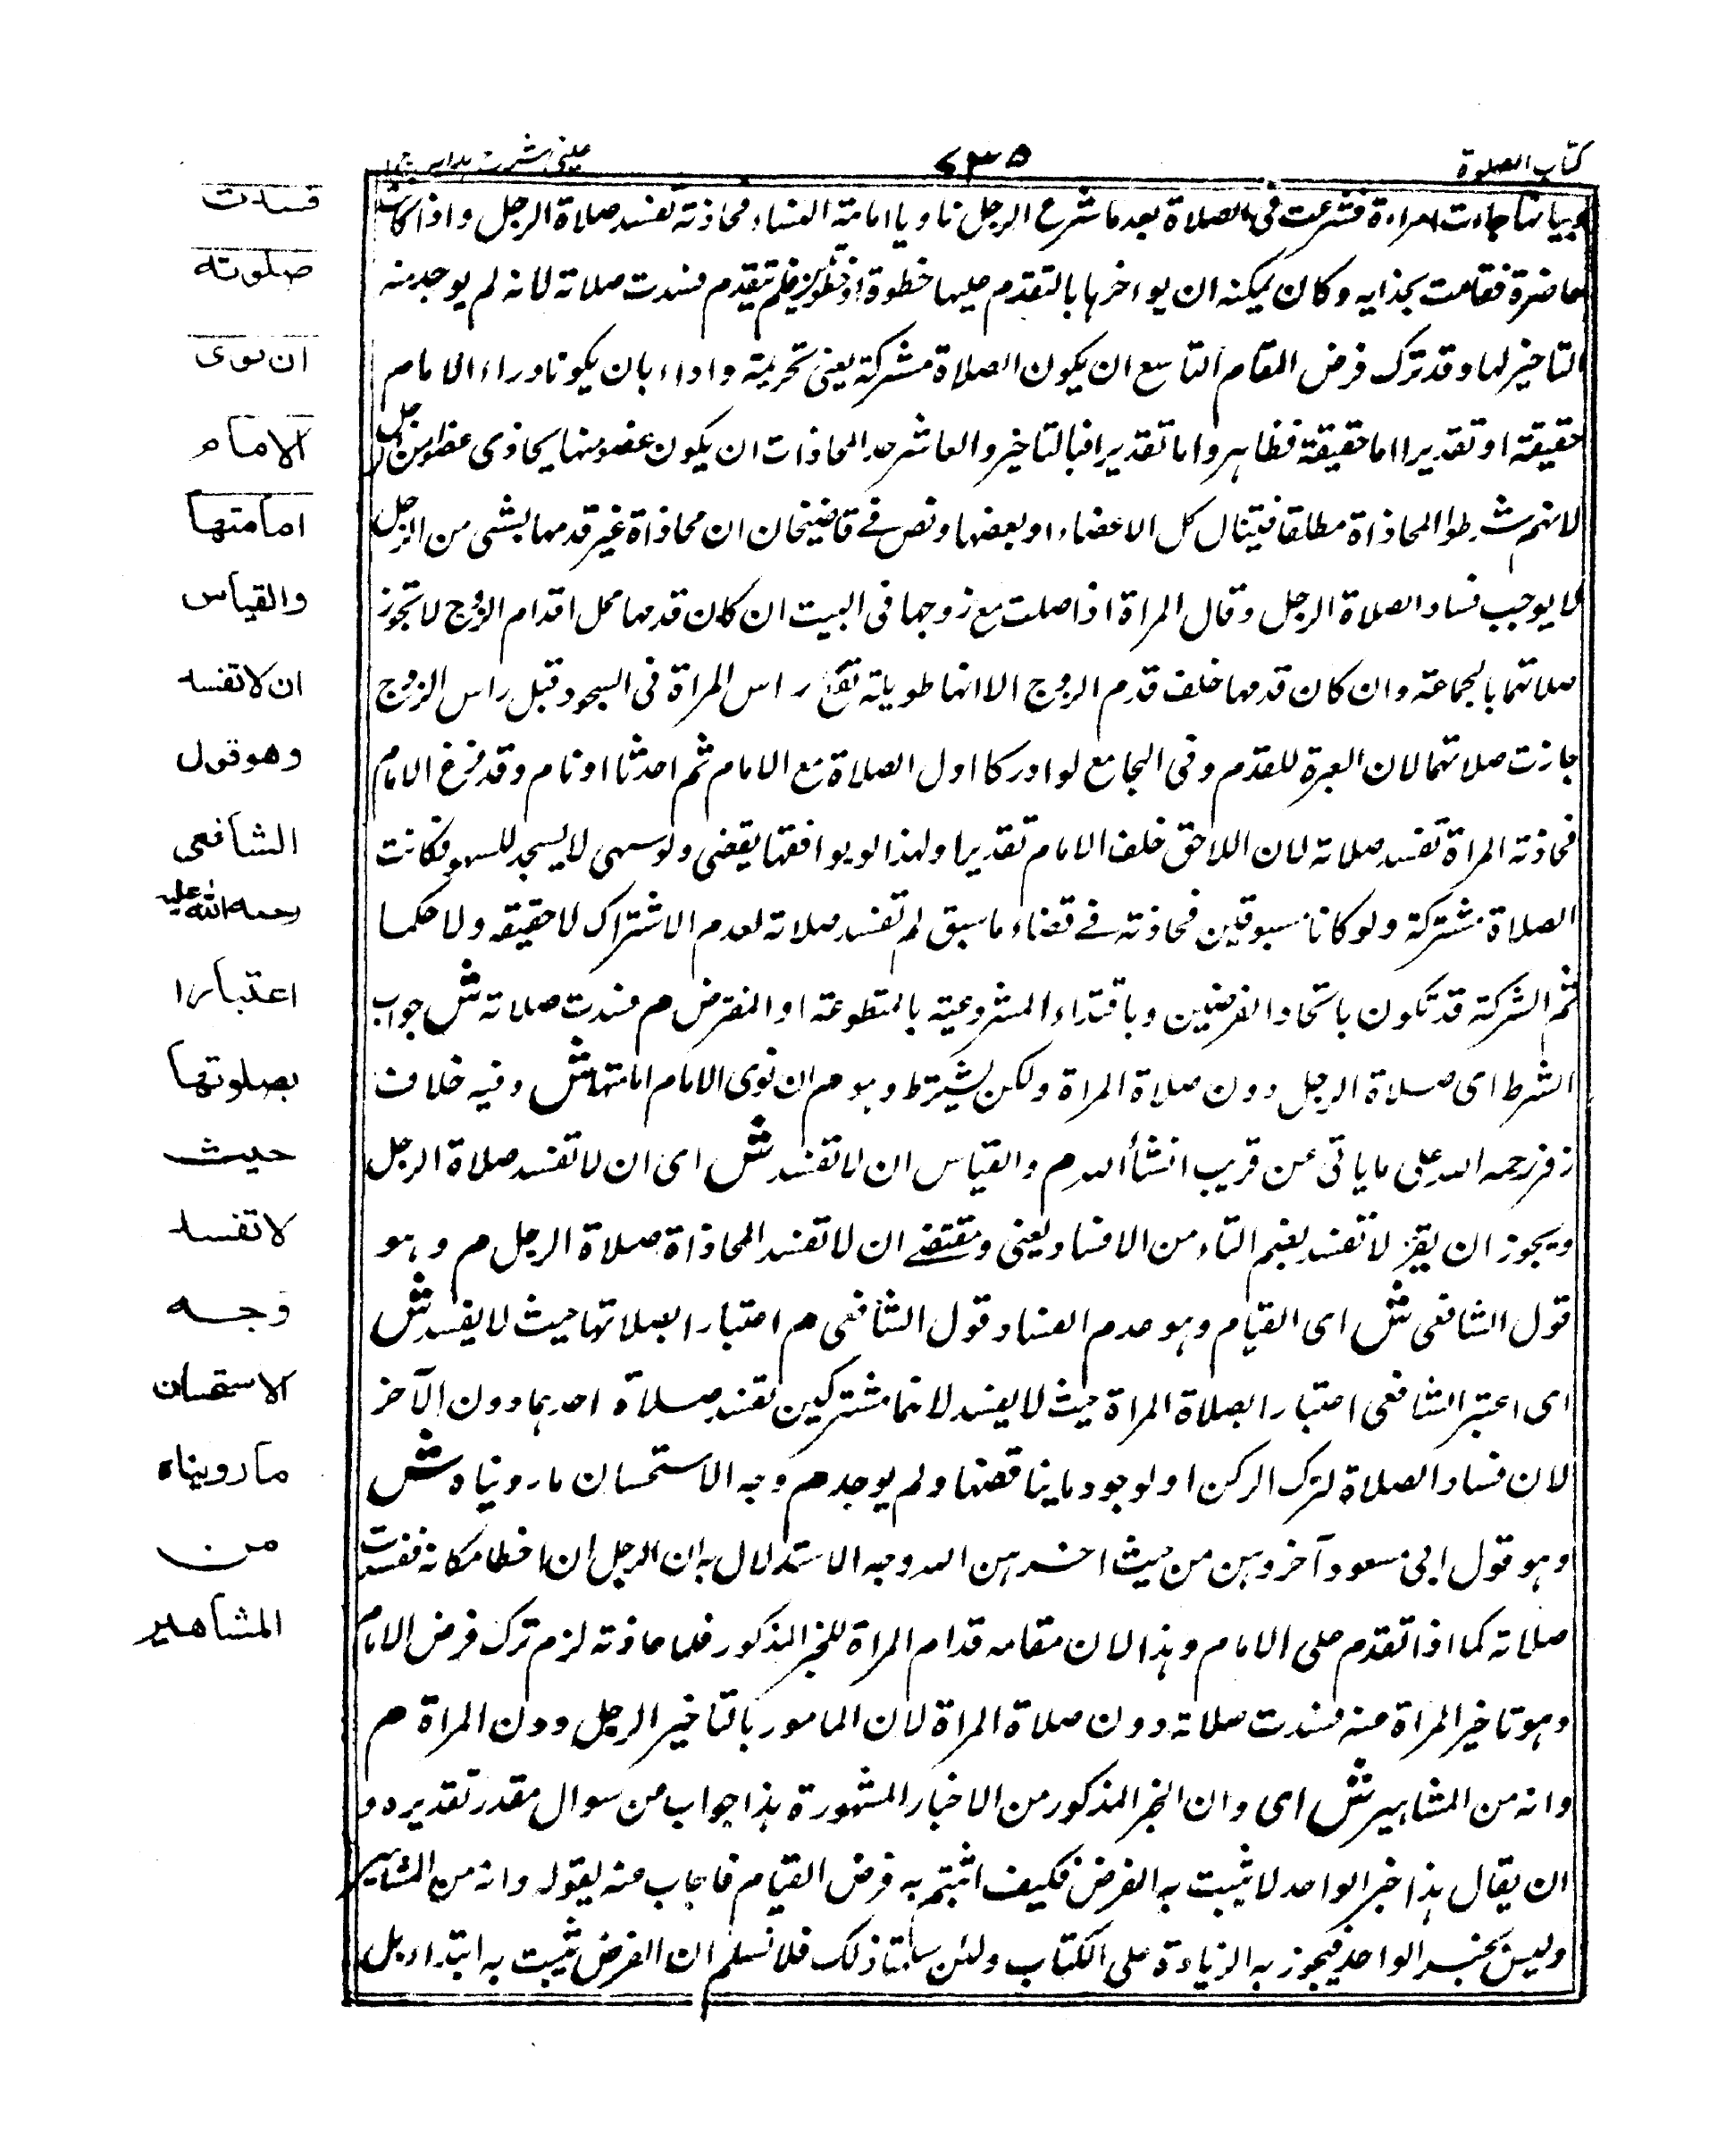 كتاب الصلوة
٧٣٥
عينى شرح هدايه ج١
وبيانها جاءت امراءة فشرعت فى الصلاة بعد ما شرع الرجل ناويا امامة النساء محاذته تفسد صلاة الرجل واذا كانت
حاضرة فقامت بحذايه وكان يمكنه ان يواخرها بالتقدم عليها خطوة اوخطوتين فلم يتقدم فسدت صلاته لانه لم يوجد منه
التاخير لها وقد ترك فرض المقام التاسع ان يكون الصلاة مشتركة يعنى تحريمة واداء بان يكونا وراء الامام
حقيقة او تقديرا اما حقيقة فظاهر واما تقديرا فبالتاخير والعاشر حد المحاذات ان يكون عضو منها يحاذى عضوا من الرجل
لانهم شرطوا المحاذاة مطلقا فيتنال كل الاعضاء او بعضها ونص فى قاضيخان ان محاذاة غير قدمها بشى من الرجل
لا يوجب فساد الصلاة الرجل وقال المراة اذا صلت مع زوجها فى البيت ان كان قدمها محل اقدام الزوج لا تجوز
صلاتهما بالجماعة وان كان قدمها خلف قدم الزوج الا انها طويلة تقع راس المراة فى السجود قبل راس الزوج
جازت صلاتهما لان العبرة للقدم وفى الجامع لو ادركا اول الصلاة مع الامام ثم احدثا او نام وقد فرغ الامام
فحاذته المراة تفسد صلاته لان اللاحق خلف الامام تقديرا ولهذا لو يوافقها يقضى ولو سهى لا يسجد للسهو فكانت
الصلاة مشتركة ولو كانا مسبوقين فحاذته فى قضاء ما سبق لم تفسد صلاته لعدم الاشتراك لا حقيقه ولا حكما
ثم الشركة قد تكون باتحاد الفرضين وباقتداء المشروعية بالمتطوعة او المفترض م فسدت صلاته ش جواب
الشرط اى صلاة الرجل دون صلاة المراة ولكن يشترط وهو م ان نوى الامام امامتها ش وفيه خلاف
زفر رحمه الله على ما ياتى عن قريب انشأ الله م والقياس ان لا تفسد ش اى ان لا تفسد صلاة الرجل
ويجوز ان يقرا لا تفسد بضم التاء من الافساد يعنى ومقتضى ان لا تفسد المحاذاة صلاة الرجل م وهو
قول الشافعى ش اى القيام وهو عدم الفساد قول الشافعى م اعتبارا بصلاتها حيث لا يفسد ش
اى اعتبر الشافعى اعتبارا بصلاة المراة حيث لا يفسد لانهما مشتركين تفسد صلاة احدهما دون الآخر
لان فساد الصلاة لترك الركن او لوجود ما يناقضها ولم يوجد م وجه الاستحسان ما رويناه ش
وهو قول ابى مسعود آخروهن من حيث اخرهن الله وجه الاستدلال به ان الرجل ان اخطا مكانه ففسدت
صلاته كما اذا تقدم على الامام وهذا لان مقامه قدام المراة للخبر المذكور فلما حاذته لزم ترك فرض الامام
وهو تاخير المراة عنه فسدت صلاته دون صلاة المراة لان المامور بالتاخير الرجل دون المراة م
وانه من المشاهير ش اى وان الخبر المذكور من الاخبار المشهورة هذا جواب عن سوال مقدر تقديره و
ان يقال هذا خبر الواحد لا يثبت به الفرض فكيف اثبتم به فرض القيام فاجاب عنه بقوله وانه من المشاهير
وليس بخبر الواحد فيجوز به الزيادة على الكتاب ولئن سلمنا ذلك فلا نسلم ان الفرض يثبت به ابتداء بل
فسدت
صلوته
ان نوى
الامام
امامتها
والقياس
ان لا تفسد
وهو قول
الشافعى
رحمه الله عليه
اعتبارا
بصلوتها
حيث
لا تفسد
وجه
الاستحسان
ما رويناه
من
المشاهير